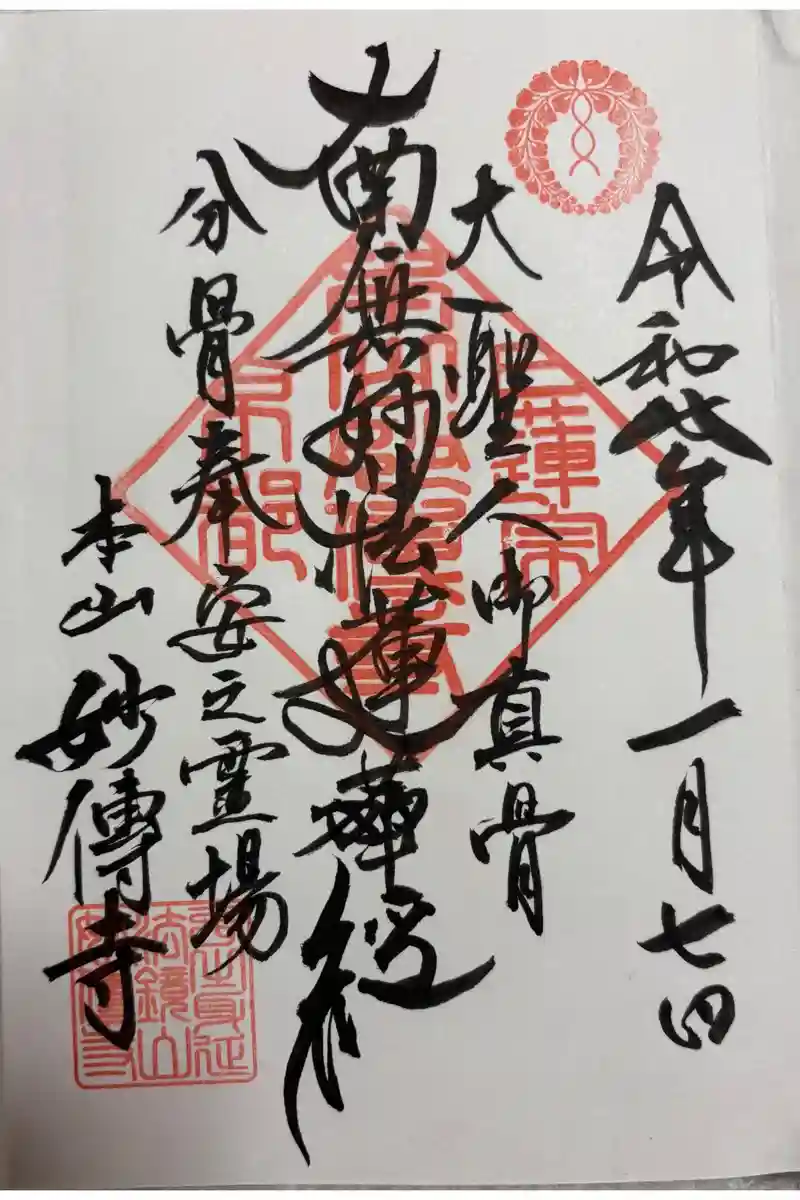 令和七年一月七日
大聖人御真骨
南無妙法蓮華経
分骨奉安之霊場
本山妙傳寺
日蓮宗
京都
法鏡山